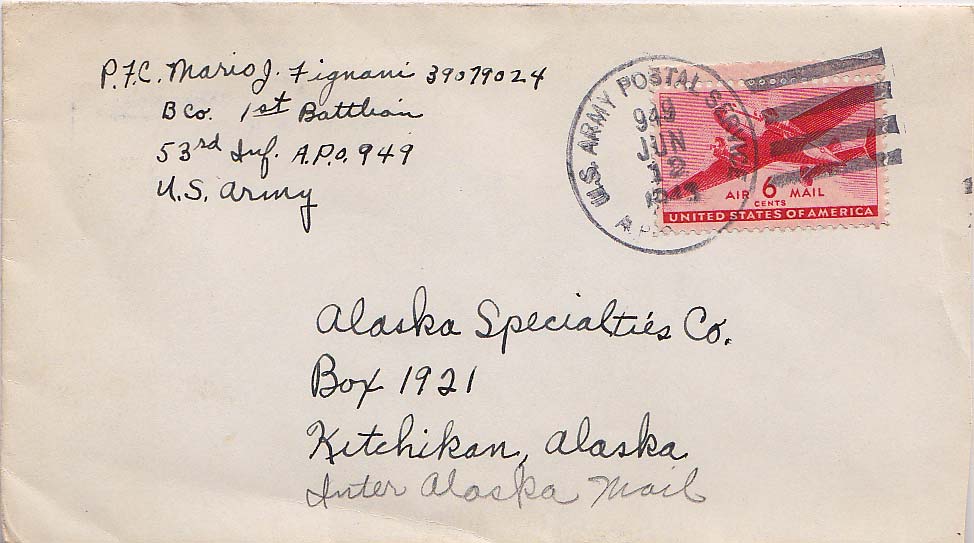 P.F.C. Mario J. Fignani 39079024
B Co. 1st Battlian
53rd Inf. A.P.O. 949
U.S. Army
U.S. ARMY POSTAL SERVICE
949
JUN
12
1943
A.P.O.
AIR 6 MAIL
CENTS
UNITED STATES OF AMERICA
Alaska Specialties Co.
Box 1921
Ketchikan, Alaska
Inter Alaska Mail